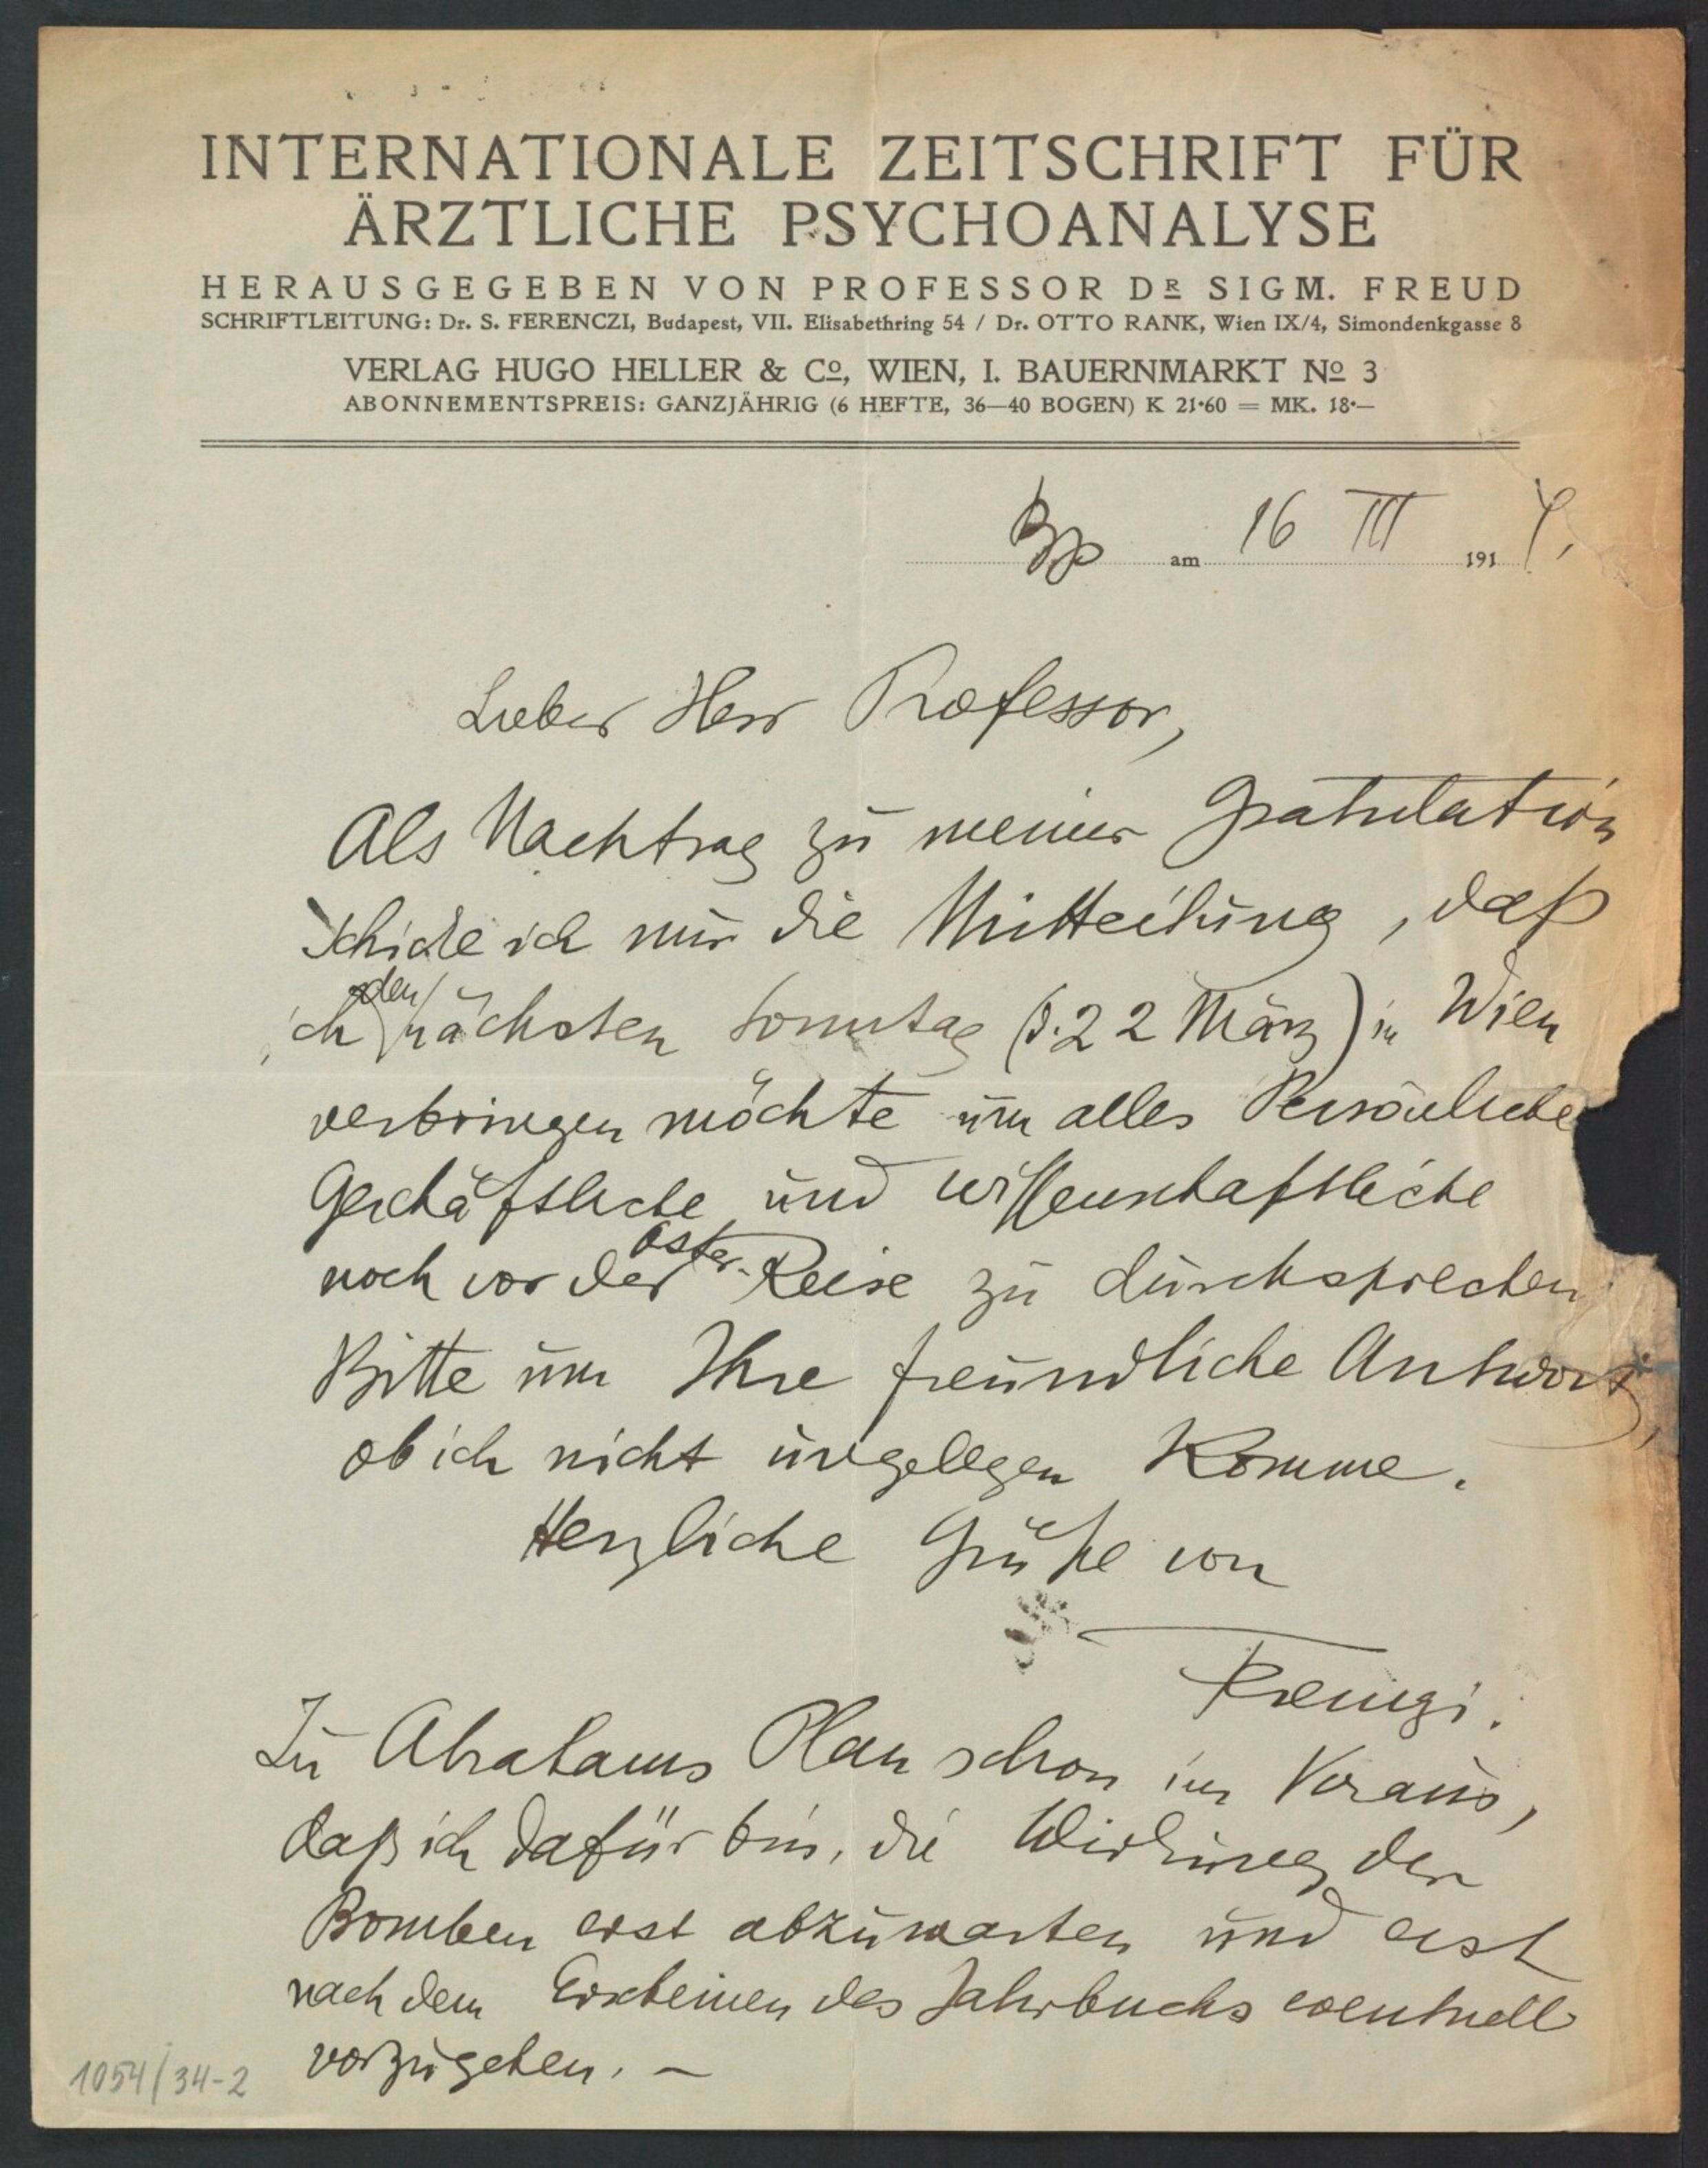 INTERNATIONALE ZEITSCHRIFT FÜR
ÄRZTLICHE PSYCHOANALYSE
HERAUSGEGEBEN VON PROFESSOR DR SIGM. FREUD
SCHRIFTLEITUNG: Dr. S. FERENCZI, Budapest, VII. Elisabethring 54 / Dr. OTTO RANK, Wien IX/4, Simondenkgasse 8
VERLAG HUGO HELLER & Co, WIEN, I. BAUERNMARKT No 3
ABONNEMENTSPREIS: GANZJÄHRIG (6 HEFTE, 36—40 BOGEN) K 21·60 = MK. 18·—
Bp am 16 III 1914.
Lieber Herr Professor,
Als Nachtrag zu meiner Gratulation
schicke ich nur die Mitteilung, daß
ich den nächsten Sonntag (d. 22 März) in Wien
verbringen möchte um alles Persönliche
Geschäftliche und wissenschaftliche
noch vor der Oster-Reise zu durchsprechen
Bitte um Ihre freundliche Antwort,
ob ich nicht ungelegen komme.
Herzliche Grüße von
Ferenczi.
Zu Abrahams Plan schon im Voraus,
daß ich dafür bin, die Wirkung der
Bomben erst abzuwarten und erst
nach dem Erscheinen des Jahrbuchs eventuell
vorzugehen. —
1054/34-2